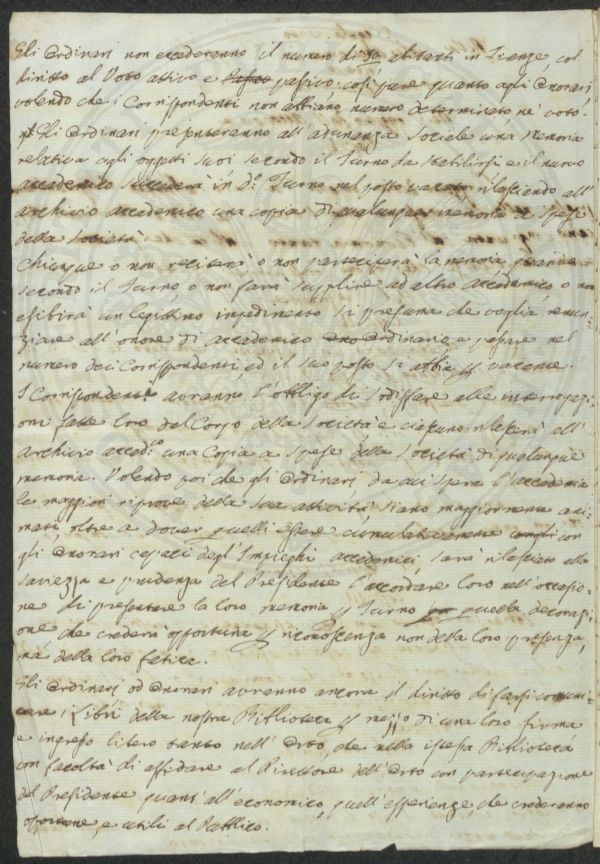 Gli Ordinarj non eccederanno il numero di 30 abitanti in Firenze col
diritto al Voto attivo e passivo, così pure quanto agli Onorarj
volendo che i Corrispondenti non abbiano numero determinato, nè voto.
Gli Ordinarj presenteranno all'adunanza Sociale una Memoria
relativa agli oggetti suoi secondo il Turno da Stabilirsi e il nuovo
accademico succederà in do. Turno nel posto vacato rilasciando all'
archivio accademico una copia di qualunque memoria a Spese
della Società.
Chiunque o non reciterà o non parteciperà la memoria quando
secondo il Turno, o non farà supplire ad altro accademico o non
esibirà un legittimo impedimento si presuma che voglia renun-
ziare all'onore di accademico Ordinario e passare nel
numero dei Corrispondenti, ed il suo posto si abbia p vacante.
I Corrispondenti avranno l'obbligo di sodisfare alle interrogazi-
oni fatte loro dal Corpo della Società e ciascuno rilascerà all'
Archivio accad.o una Copia a Spese della Società di qualunque
memoria. Volendo poi che gli Ordinarj da cui spera l'accademia
le maggiori riprove della sua attività siano maggiormente ani-
mati, oltre a dover quelli essere cumulativamente con
gli Onorarj capaci degl'Impieghi accademici sarà rilasciato alla
saviezza e prudenza del Presidente l'accordare loro nell'occasio-
ne di presentare la loro memoria p Turno quella decorazi-
one, che crederà opportuna p riconoscenza non della loro presenza,
mà della loro fatica.
Gli Ordinarj ed Onorarj avranno ancora il diritto di farsi comuni-
care i Libri della nostra Biblioteca p mezzo di una loro firma
e ingresso libero tanto nell'Orto, che nella istessa Biblioteca
con facoltà di affidare al Direttore dell'Orto con partecipazione
del Presidente quant'all'economico, quell'esperienze, che crederanno
opportune, e utili al Pubblico.